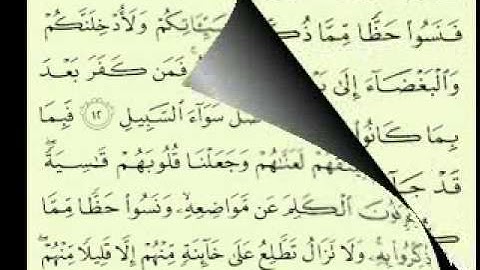 فَنَسُواْ حَظًّا مِّمَّا سَيِّئَاتِكُمْ وَلَأُدْخِلَنَّكُمْ
وَالْبَغْضَآءَ إِلَىٰ فَمَن كَفَرَ بَعْدَ
بِمَا كَانُواْ سَوَآءَ السَّبِيلِ ١٢ فَبِمَا
قَدْ لَعَنَّاهُمْ وَجَعَلْنَا قُلُوبَهُمْ قَاسِيَةً
الْكَلِمَ عَن مَّوَاضِعِهِۦ وَنَسُواْ حَظًّا مِّمَّا
ذُكِّرُواْ بِهِۦ وَلَا تَزَالُ تَطَّلِعُ عَلَىٰ خَآئِنَةٍ مِّنْهُمْ إِلَّا قَلِيلًا مِّنْهُمْ